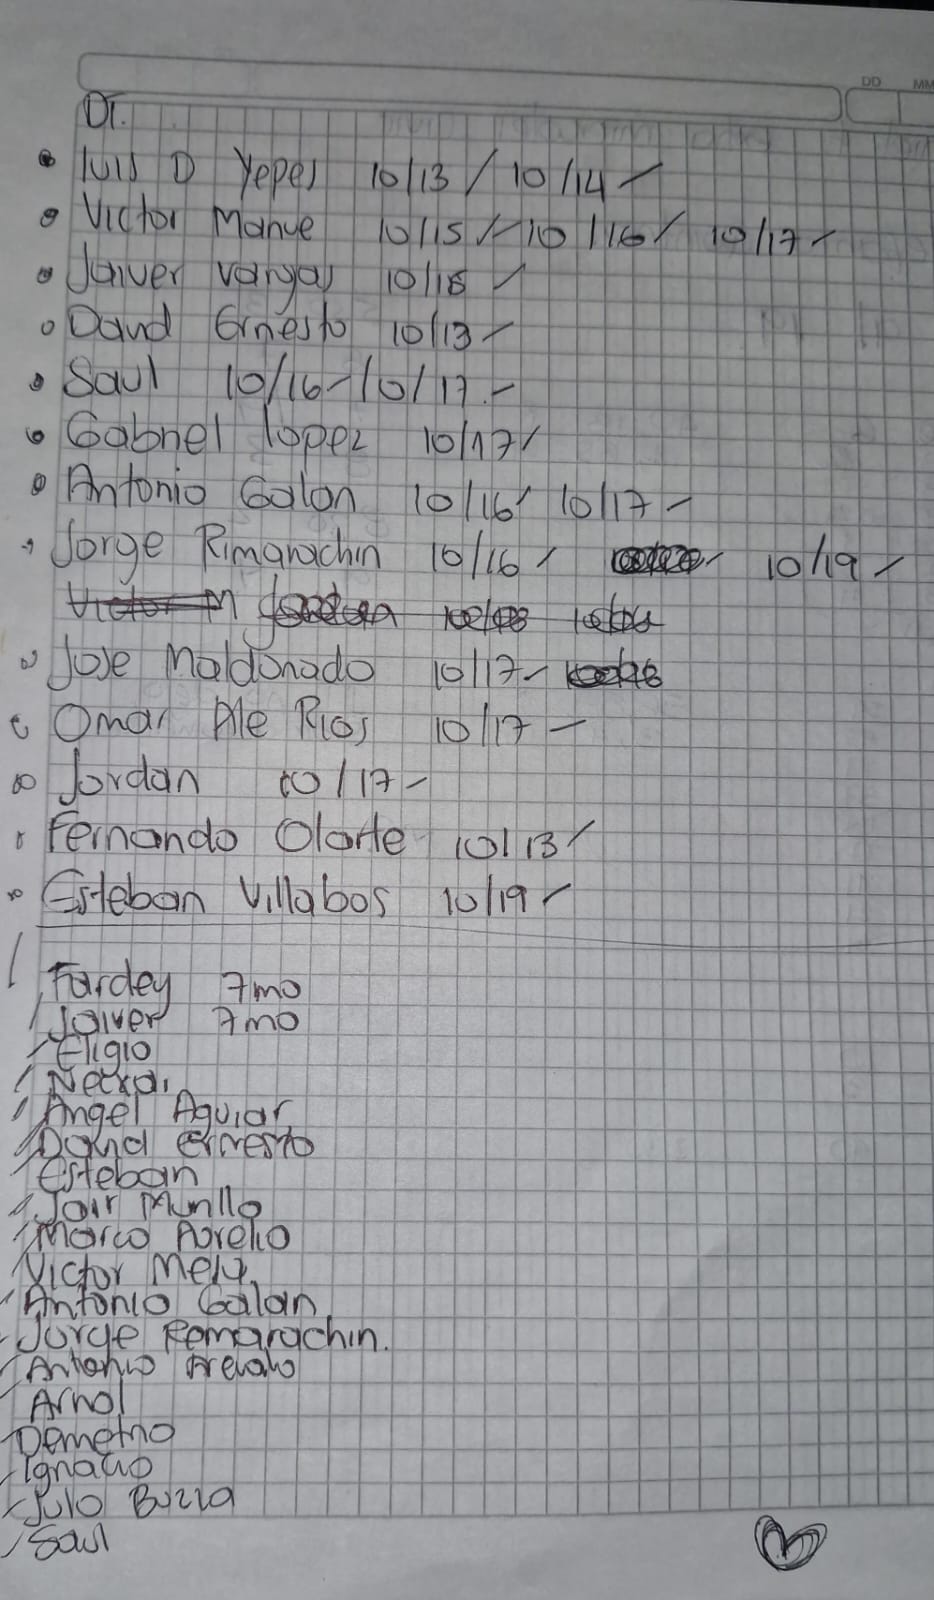 DD MM
DT.
Luis D Yepes 10/13 / 10/14
Victor Manue 10/15 / 10/16 / 10/17
Jaiver Vargas 10/18
David Ernesto 10/13
Saul 10/16 - 10/17
Gabriel Lopez 10/17
Antonio Galan 10/16 10/17
Jorge Rimarachin 10/16 10/19
Victor M
Jose Maldonado 10/17
Omar Ale Rios 10/17
Jordan 10/17
Fernando Olarte 10/13
Esteban Villabos 10/19
Fardey 7mo
Jaiver 7mo
Eligio
Angel Aguiar
David Ernesto
Esteban
Jair Murillo
Marco Aurelio
Victor
Antonio Galan
Jorge Remarachin.
Antonio Arevalo
Arnol
Demetrio
Ignacio
Julo
Saul